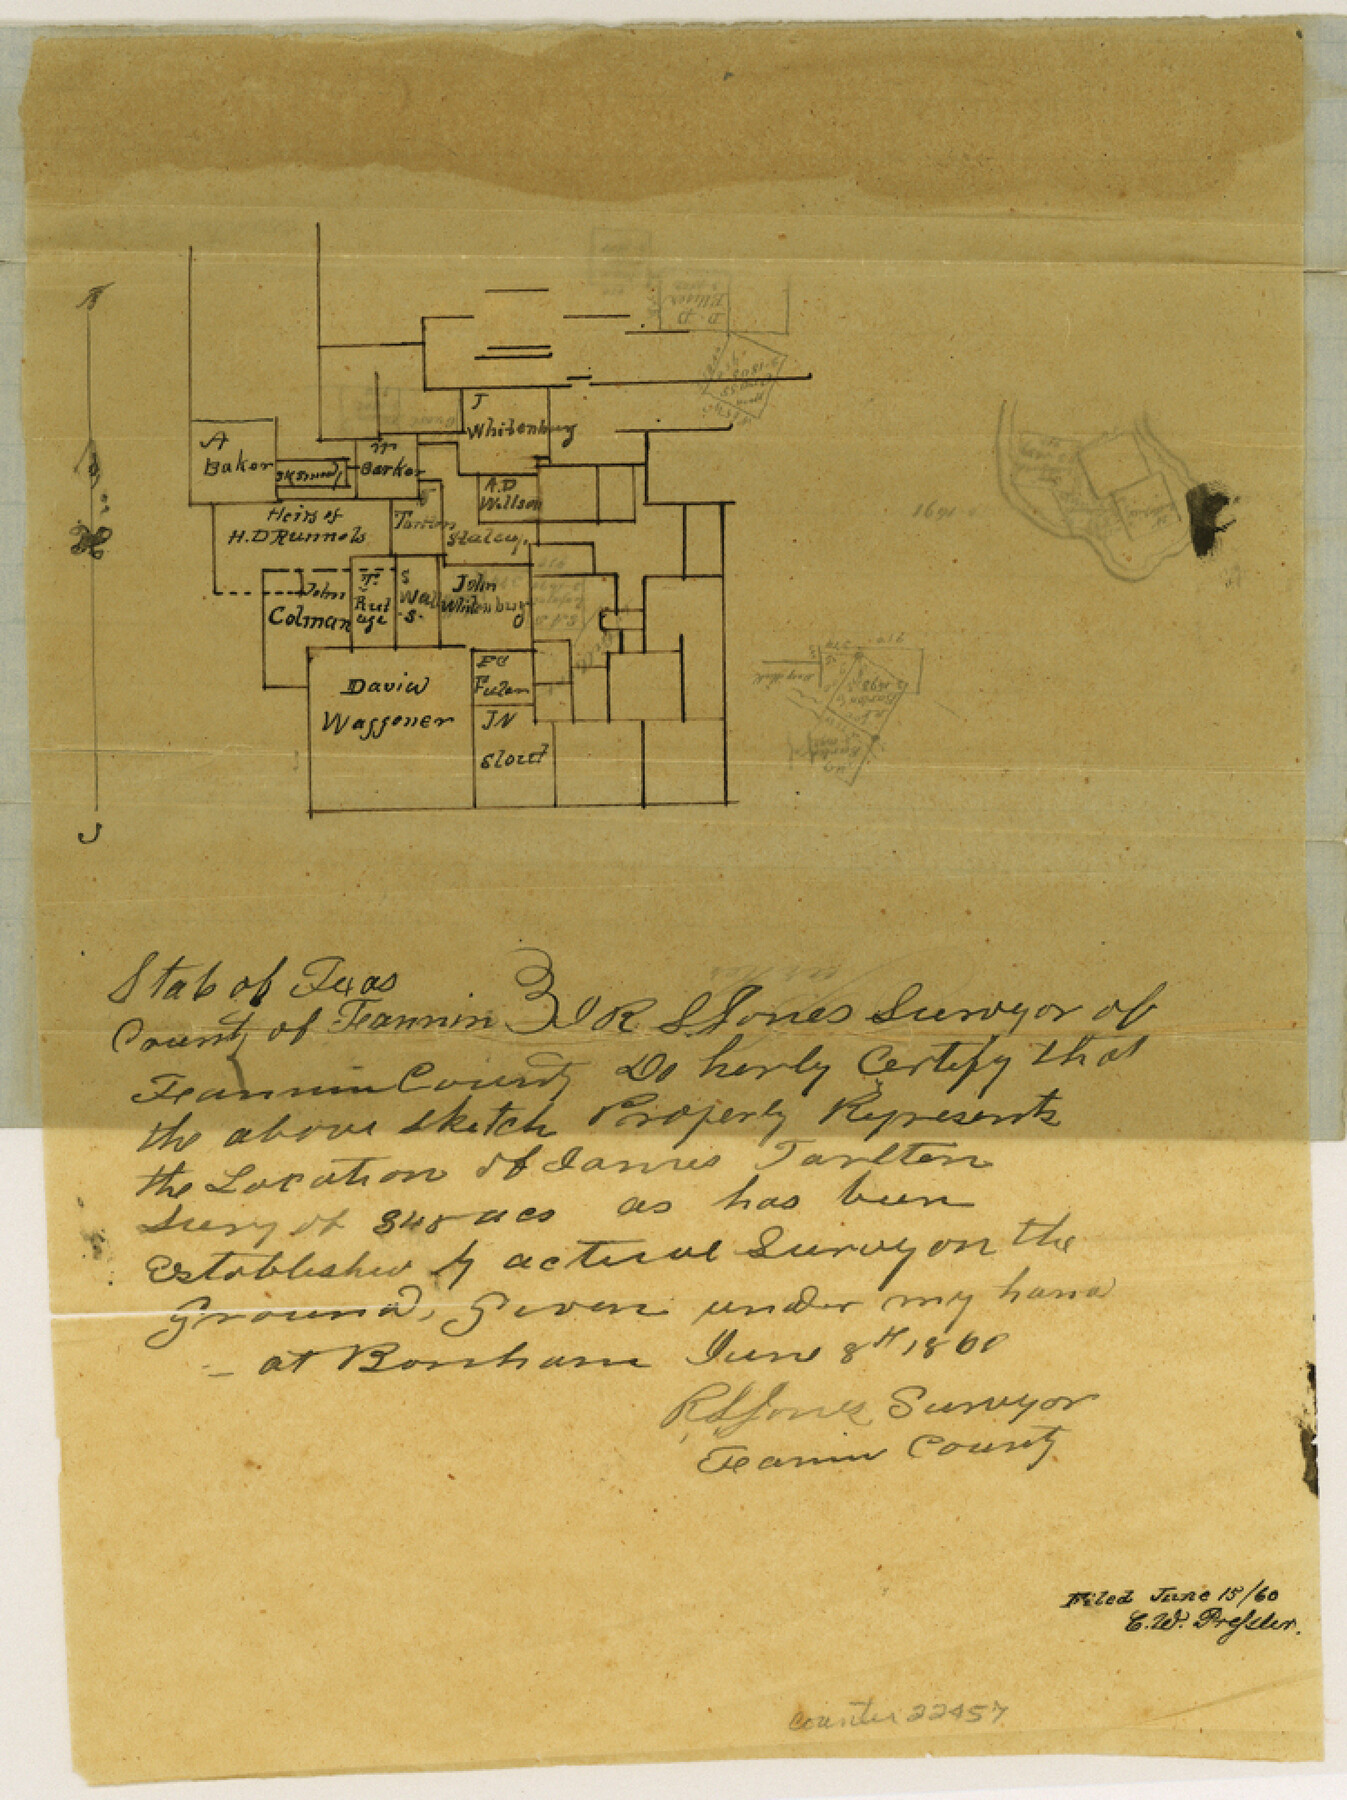 N
S
A
Baker
W
Barker
J
Whitenburg
A.D
Willson
Heirs of
H. D Runnels
Stalcup
John
Colman
T.
Rut
ege
S
Wall
S.
John
Whitenburg
David
Waggoner
E C
Fuler
J N
Stout
D. D
State of Texas
County of Feannin } I R S Jones Surveyor of
Feannin County Do herby Certify that
the above sketch Properly Represents
the Location of James Tarlton
Survy of 348 acs as has been
Established by actual Survey on the
Ground, Given under my hand
at Bonham June 8th 1860
R S Jones Surveyor
Feannin County
Filed June 15/60
C. W. Pressler.
counter 22457